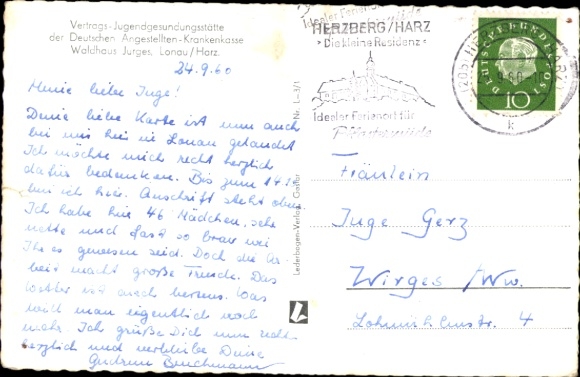 Vertrags-Jugendgesundungsstätte
der Deutschen Angestellten-Krankenkasse
Waldhaus Jürges, Lonau/Harz.
24.9.60
Meine liebe Inge!
Deine liebe Karte ist nun auch
bei mir hier in Lonau gelandet
Ich möchte mich recht herzlich
dafür bedanken. Bis zum 14.10.
bin ich hier. Anschrift steht oben.
Ich habe hier 46 Mädchen, sehr
nette und fast so brav wie
Ihr es gewesen seid. Doch die Ar-
beit macht große Freude. Das
Wetter ist auch bestens. Was
will man eigentlich noch
mehr. Ich grüße Dich nun recht
herzlich und verbleibe Deine
Gudrun
Lederbogen-Verlag, Goslar
Nr. L-3/1
Idealer Ferienort für
HERZBERG/HARZ
›Die kleine Residenz‹
Idealer Ferienort für
DEUTSCHE BUNDESPOST
10
k
Fräulein
Inge Gerz
Wirges /Ww.
4